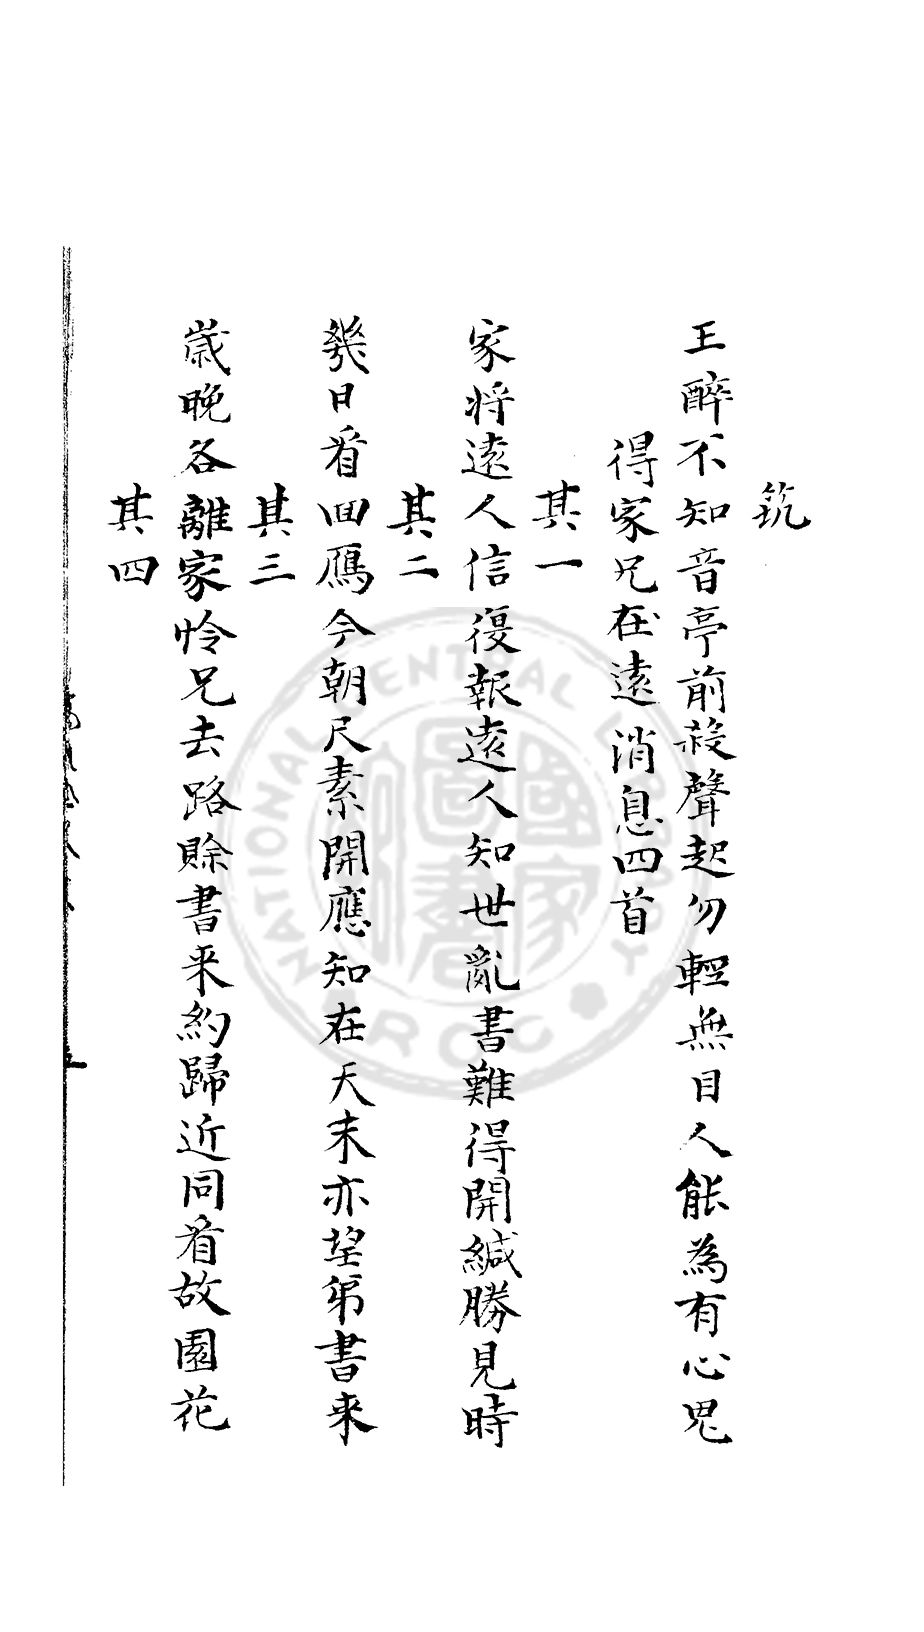 筑
王醉不知音亭前殺聲起勿輕無目人能為有心鬼
得家兄在遠消息四首
其一
家將遠人信復報遠人知世亂書難得開緘勝見時
其二
幾日看回鴈今朝尺素開應知在天末亦望弟書来
其三
歲晚各離家怜兄去路賒書来約歸近同看故園花
其四
NATIONAL CENTRAL LIBRARY
ROC
國家圖書